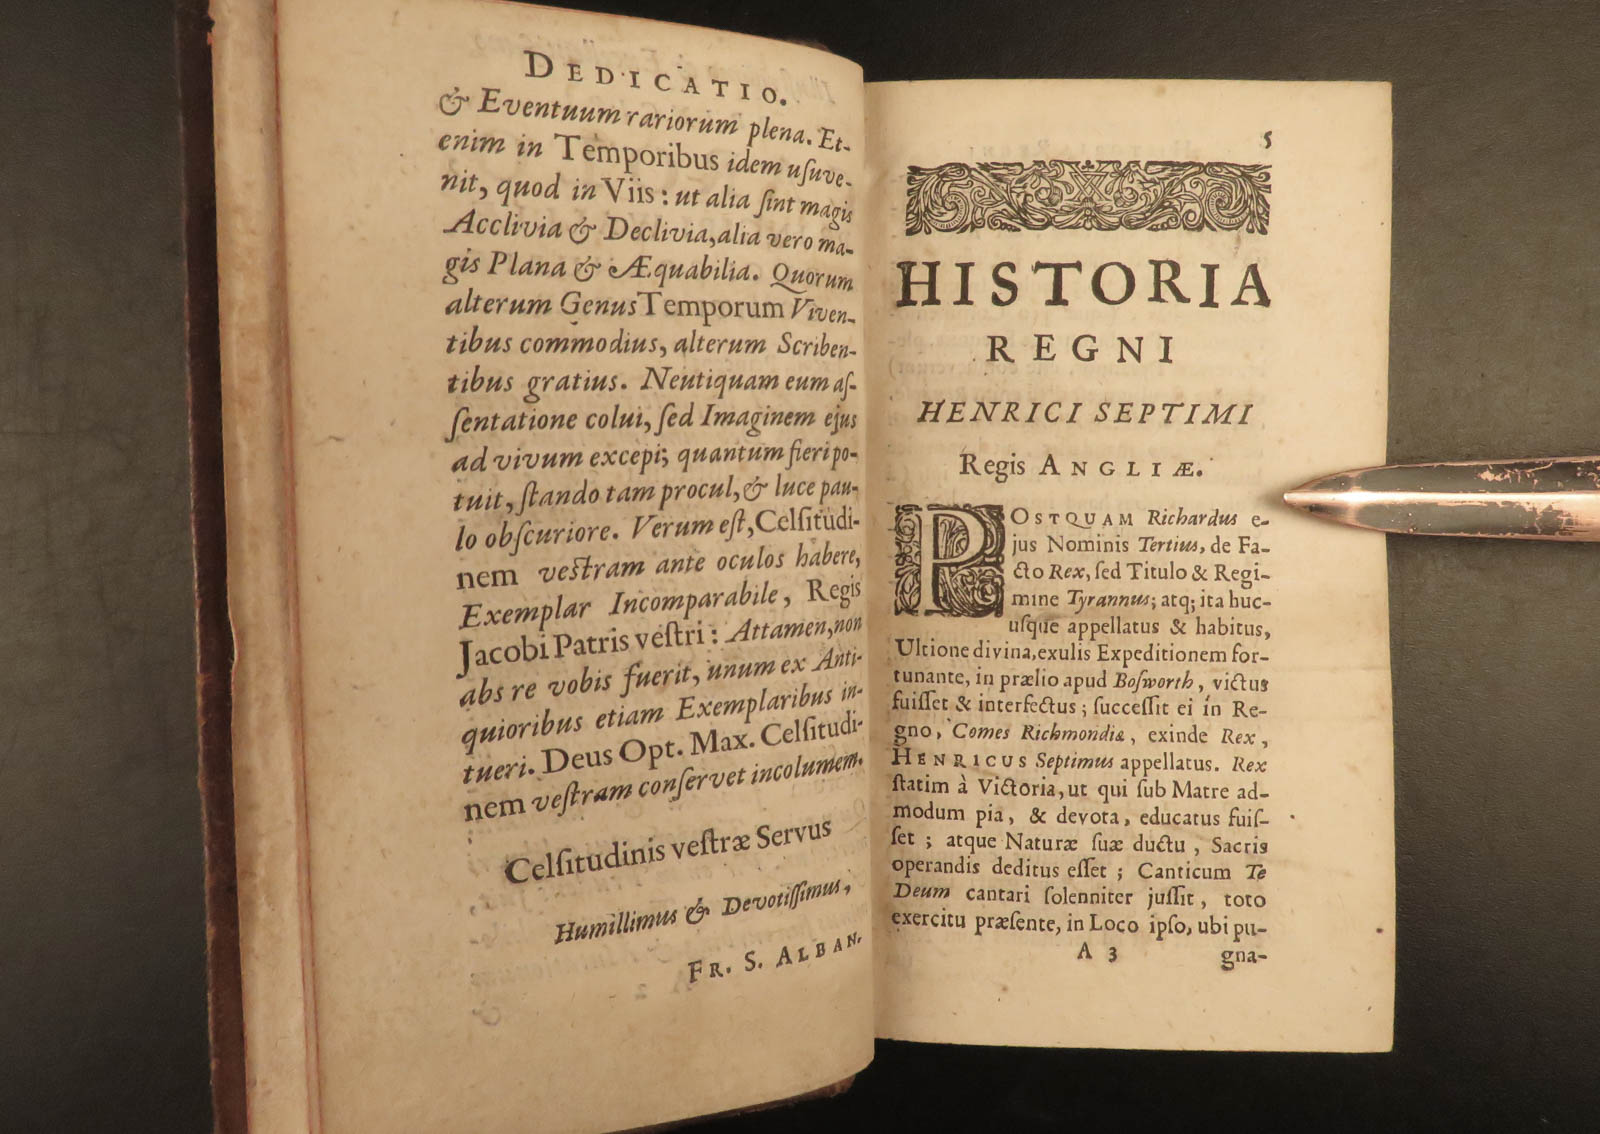 DEDICATIO.
& Eventuum rariorum plena. Et-
enim in Temporibus idem uſuve-
nit, quod in Viis: ut alia ſint magis
Acclivia & Declivia, alia vero ma-
gis Plana & Æquabilia. Quorum
alterum Genus Temporum Viven-
tibus commodius, alterum Scriben-
tibus gratius. Neutiquam eum aſ-
ſentatione colui, ſed Imaginem ejus
ad vivum excepi; quantum fieri po-
tuit, ſtando tam procul, & luce pau-
lo obſcuriore. Verum eſt, Celſitudi-
nem veſtram ante oculos habere,
Exemplar Incomparabile, Regis
Jacobi Patris veſtri: Attamen, non
abs re vobis fuerit, unum ex Anti-
quioribus etiam Exemplaribus in-
tueri. Deus Opt. Max. Celſitudi-
nem veſtram conſervet incolumem.
Celſitudinis veſtræ Servus
Humillimus & Devotiſſimus,
FR. S. ALBAN.
5
HISTORIA
REGNI
HENRICI SEPTIMI
Regis ANGLIÆ.
POSTQUAM Richardus e-
jus Nominis Tertius, de Fa-
cto Rex, ſed Titulo & Regi-
mine Tyrannus; atq; ita huc-
uſque appellatus & habitus,
Ultione divina, exulis Expeditionem for-
tunante, in prælio apud Boſworth, victus
fuiſſet & interfectus; ſucceſſit ei in Re-
gno, Comes Richmondiæ, exinde Rex,
HENRICUS Septimus appellatus. Rex
ſtatim à Victoria, ut qui ſub Matre ad-
modum pia, & devota, educatus fuiſ-
ſet; atque Naturæ ſuæ ductu, Sacris
operandis deditus eſſet; Canticum Te
Deum cantari ſolenniter juſſit, toto
exercitu præſente, in Loco ipſo, ubi pu-
A 3 gna-